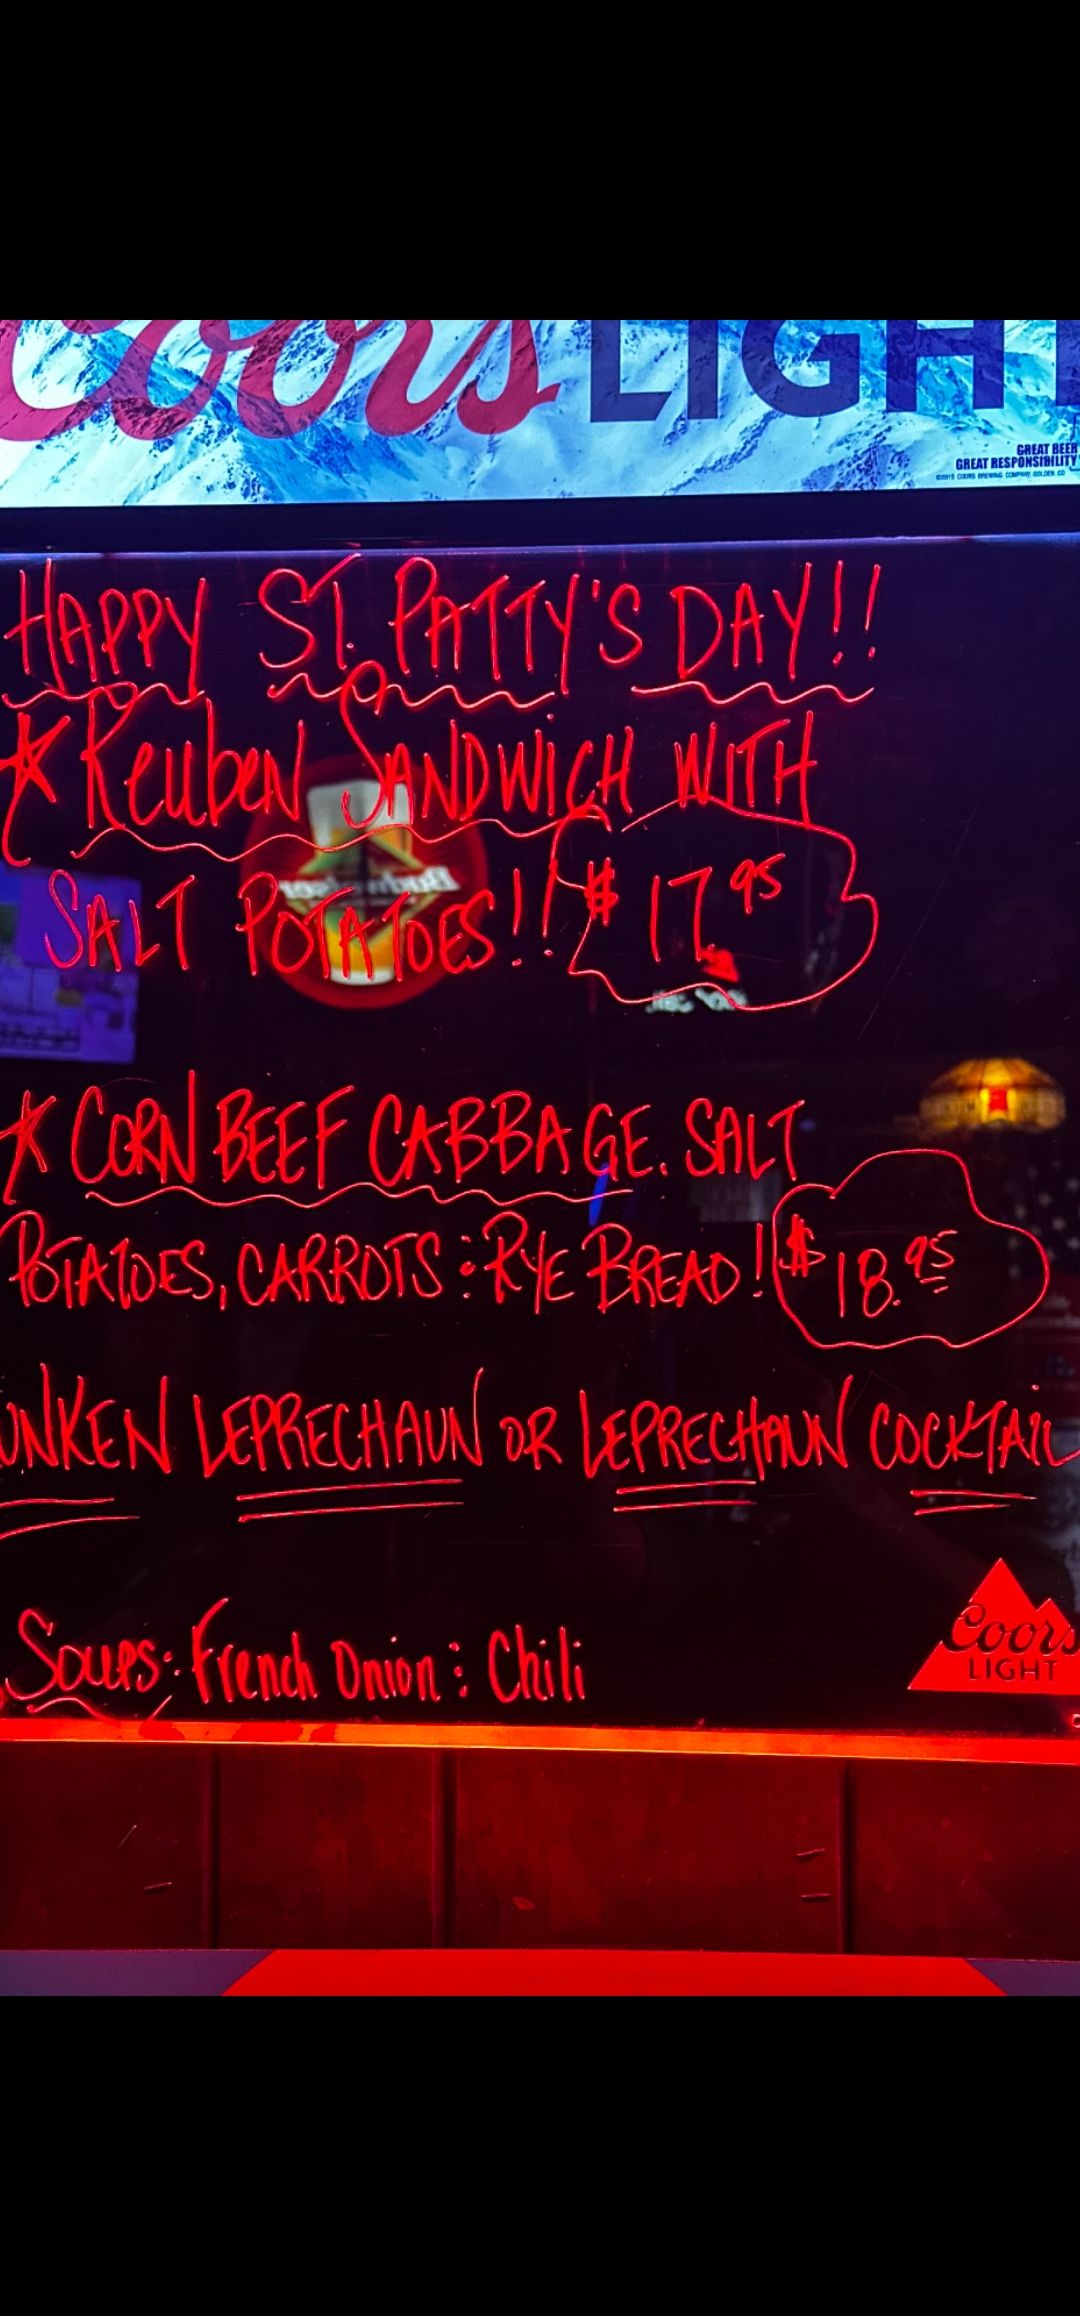 Coors LIGHT
GREAT BEER
GREAT RESPONSIBILITY
©2015 COORS BREWING COMPANY, GOLDEN, CO
HAPPY ST. PATTY'S DAY!!
Reuben SANDWICH WITH
SALT POTATOES!! $17.95
CORN BEEF CABBAGE. SALT
POTATOES, CARROTS : RYE BREAD! $18.95
UNKEN LEPRECHAUN OR LEPRECHAUN COCKTAIL
Soups: French Onion : Chili
Coors
LIGHT